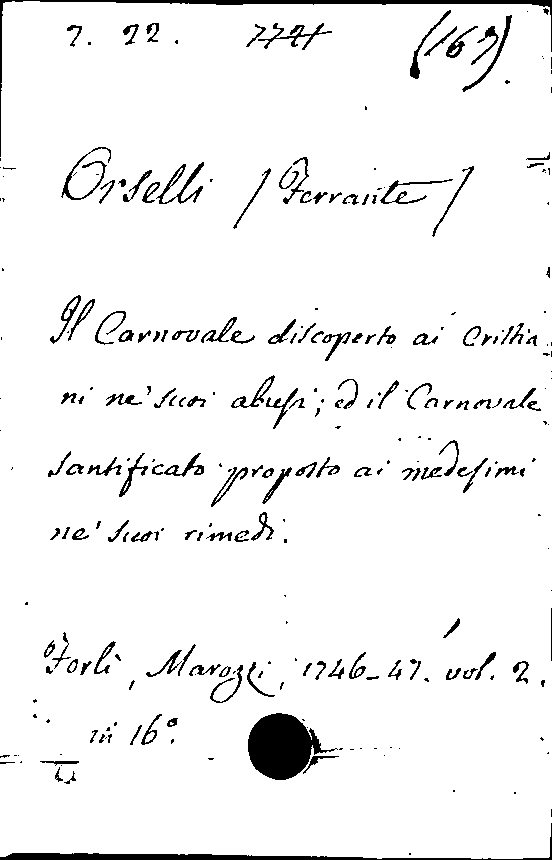 7. 22. (167)
Orselli / Ferrante /
Il Carnovale discoperto ai Cristia
ni ne' suoi abusi; ed il Carnovale
santificato proposto ai medesimi
ne' suoi rimedi.
Forlì, Marozzi, 1746-47. vol. 2.
in 16°.